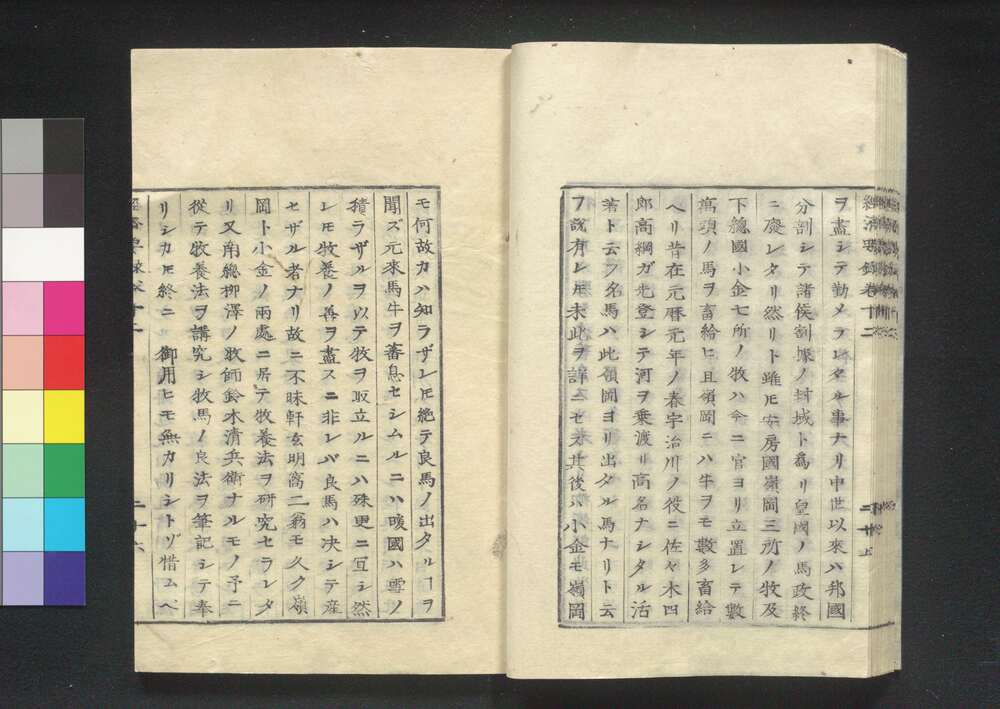 經濟要錄卷十二
ヲ盡シテ勤メラレタル事ナリ中世以來ハ邦國
分割シテ諸侯割據ノ封域ト爲リ皇國ノ馬政終
ニ廢レタリ然リト雖ㇳモ安房國嶺岡三所ノ牧及
下總國小金七所ノ牧ハ今ニ官ヨリ立置レテ數
萬頭ノ馬ヲ畜給ヒ且嶺岡ニハ牛ヲモ數多畜給
ヘリ昔在元曆元年ノ春宇治川ノ役ニ佐々木四
郎高綱ガ先登シテ河ヲ乗渡リ高名ナシタル活
ト云フ名馬ハ此嶺岡ヨリ出タル馬ナリト云
フ說有レㇳモ未此ヲ詳ニセズ其後ハ小金モ嶺岡
モ何故カハ知ラザレㇳモ絶テ良馬ノ出タルヿヲ
聞ズ元來馬牛ヲ蕃息セシムルニハ暖國ハ雪ノ
積ラザルヲ以テ牧ヲ取立ルニハ殊更ニ宜シ然
レㇳモ牧養ノ善ヲ盡スニ非レバ良馬ハ决シテ産
セザル者ナリ故ニ不昧軒玄明窩二翁モ久ク嶺
岡ト小金ノ兩處ニ居テ牧養法ヲ研究セラレタ
リ又南總柳澤ノ牧師鈴木清兵衛ナルモノ予ニ
從テ牧養法ヲ講究シ牧馬ノ良法ヲ筆記シテ奉
リシカㇳモ終ニ 御用ヒモ無カリシトゾ惜ムベ